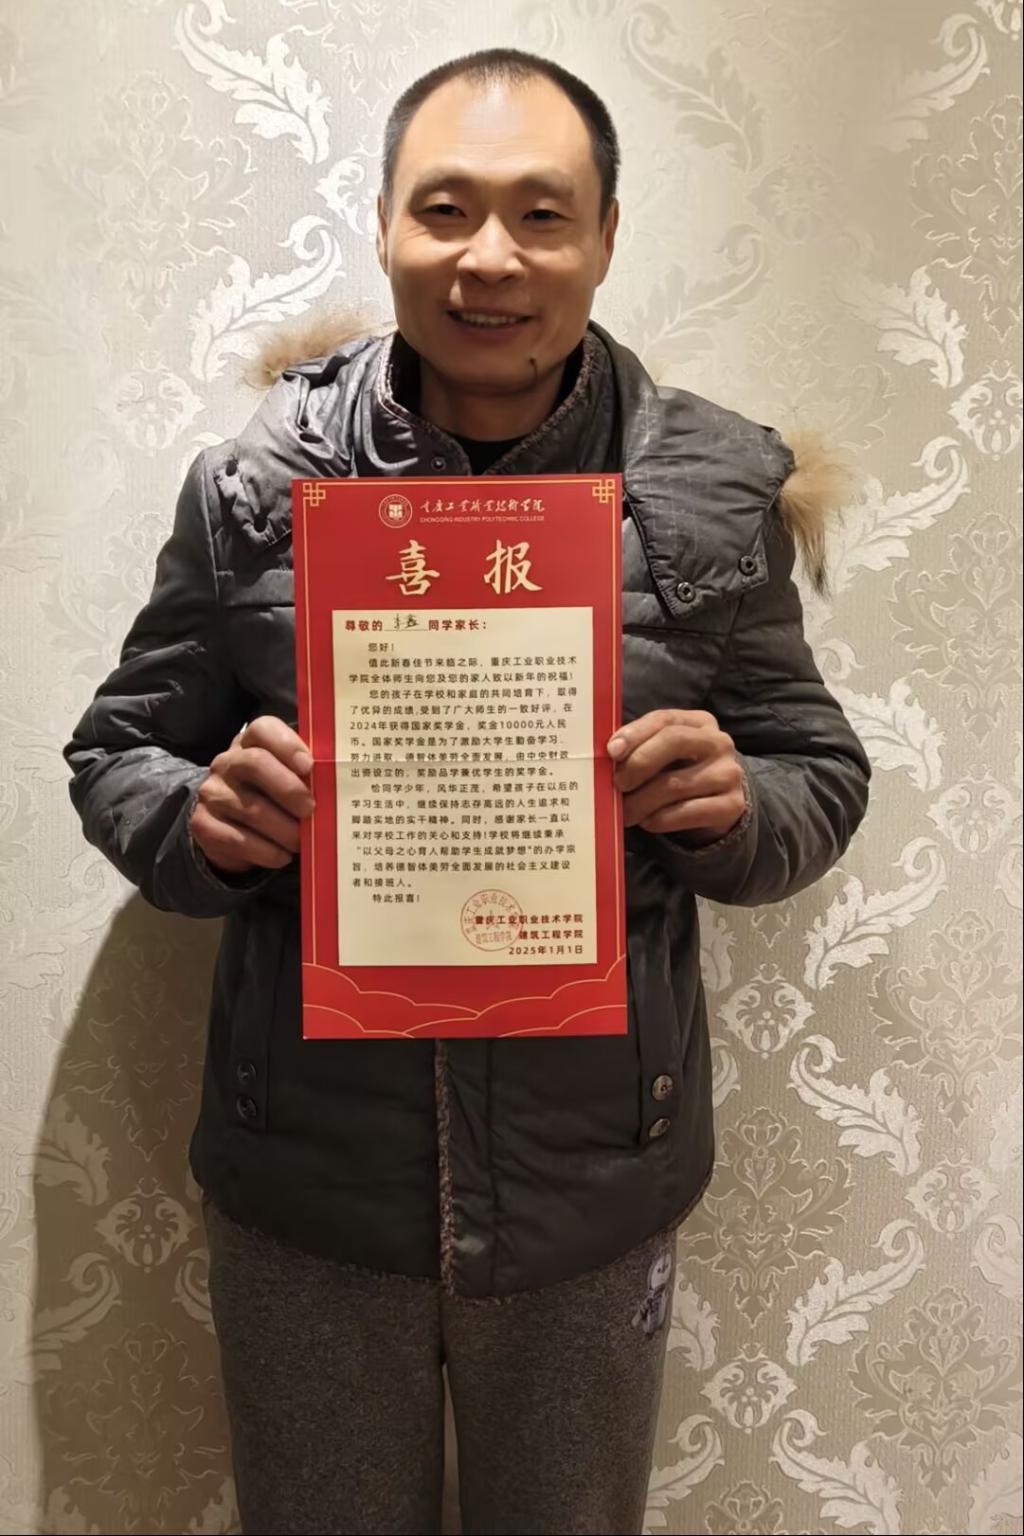 重庆工业职业技术学院
CHONGQING INDUSTRY POLYTECHNIC COLLEGE
喜 报
尊敬的 鑫 同学家长：
您好！
值此新春佳节来临之际，重庆工业职业技术
学院全体师生向您及您的家人致以新年的祝福！
您的孩子在学校和家庭的共同培育下，取得
了优异的成绩,受到了广大师生的一致好评，在
2024年获得国家奖学金，奖金10000元人民
币。国家奖学金是为了激励大学生勤奋学习、
努力进取，德智体美劳全面发展，由中央财政
出资设立的，奖励品学兼优学生的奖学金。
恰同学少年，风华正茂，希望孩子在以后的
学习生活中，继续保持志存高远的人生追求和
脚踏实地的实干精神。同时，感谢家长一直以
来对学校工作的关心和支持!学校将继续秉承
“以父母之心育人帮助学生成就梦想”的办学宗
旨，培养德智体美劳全面发展的社会主义建设
者和接班人。
特此报喜！
重庆工业职业技术学院
建筑工程学院
2025年1月1日
建筑工程学院